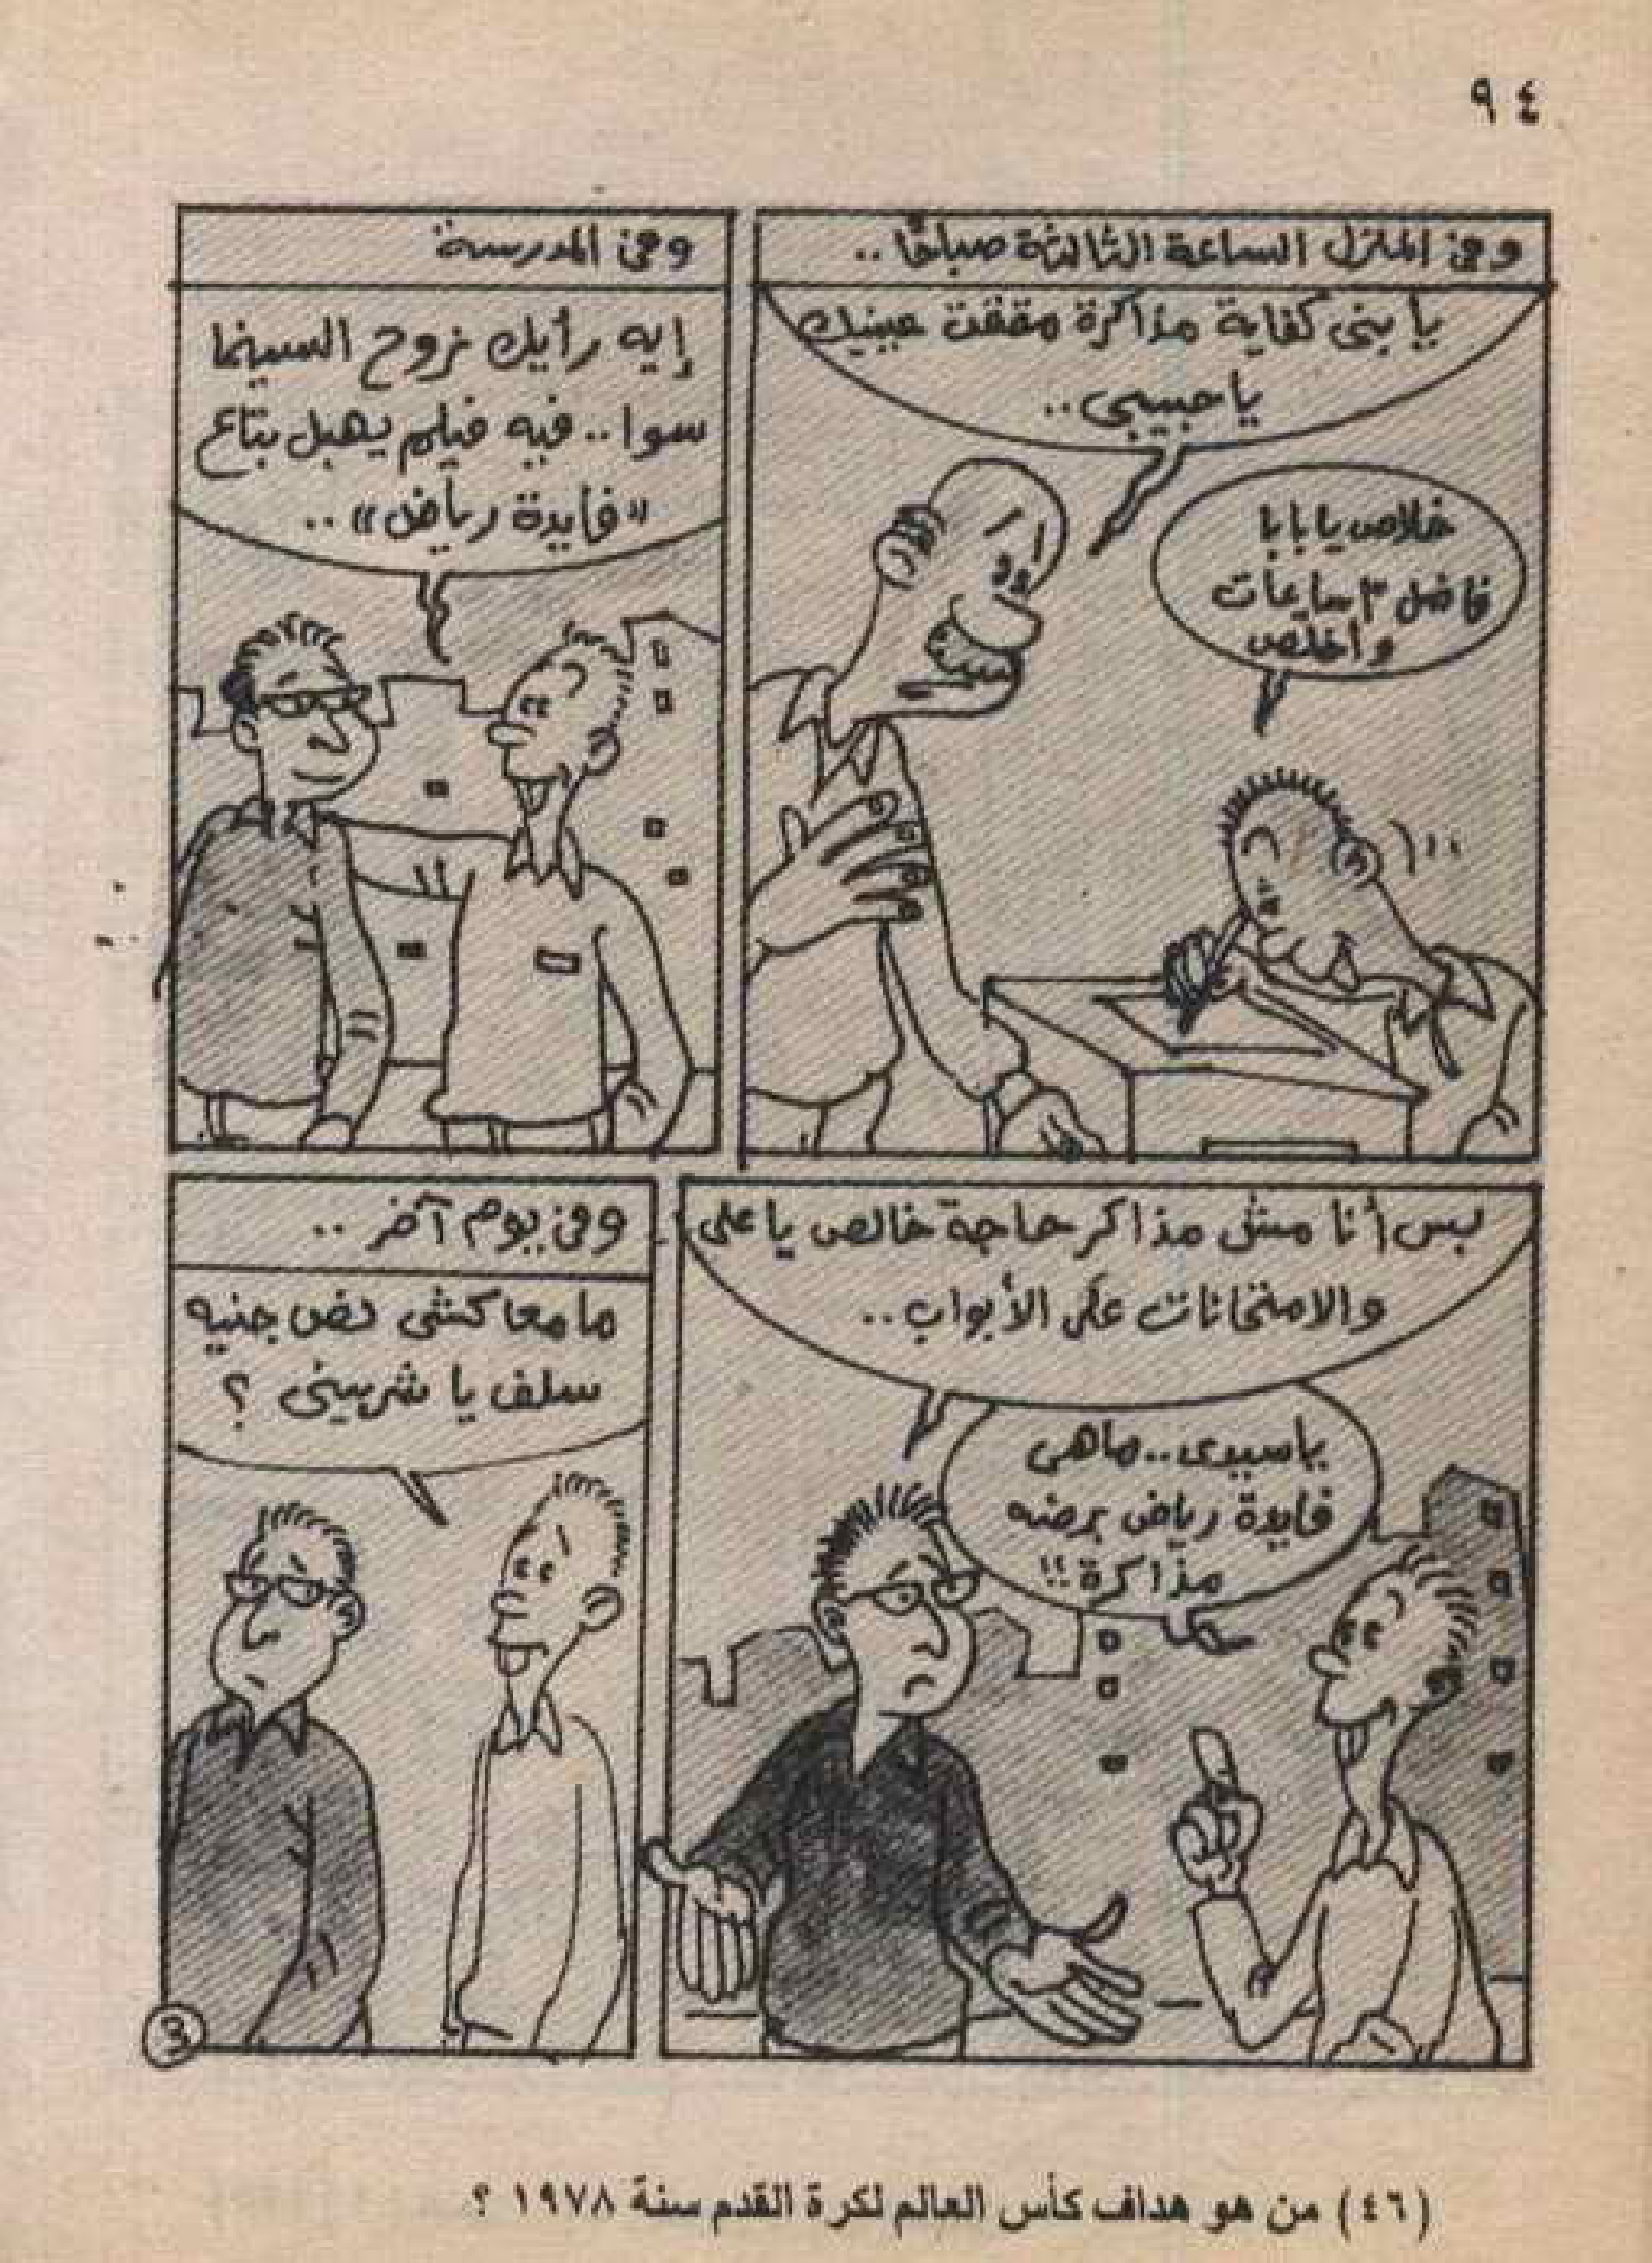 ٩٤
وفى المنزل الساعة الثالثة صباحًا ..
يا بنى كفاية مذاكرة مققت عينيك
ياحبيبى ..
خلاص يا بابا
فاضل ٣ ساعات
وأخلص
وفى المدرسة
إيه رأيك نروح السينما
سوا .. فيه فيلم يهبل بتاع
«فايدة رياض» ..
بس أنا مش مذاكر حاجة خالص يا على
والامتحانات على الأبواب ..
ياسيدى .. ماهى
فايدة رياض برضه
مذاكرة !!
وفى يوم آخر ..
مامعاكشى نص جنيه
سلف يا شربينى ؟
3
(٤٦) من هو هداف كأس العالم لكرة القدم سنة ١٩٧٨ ؟